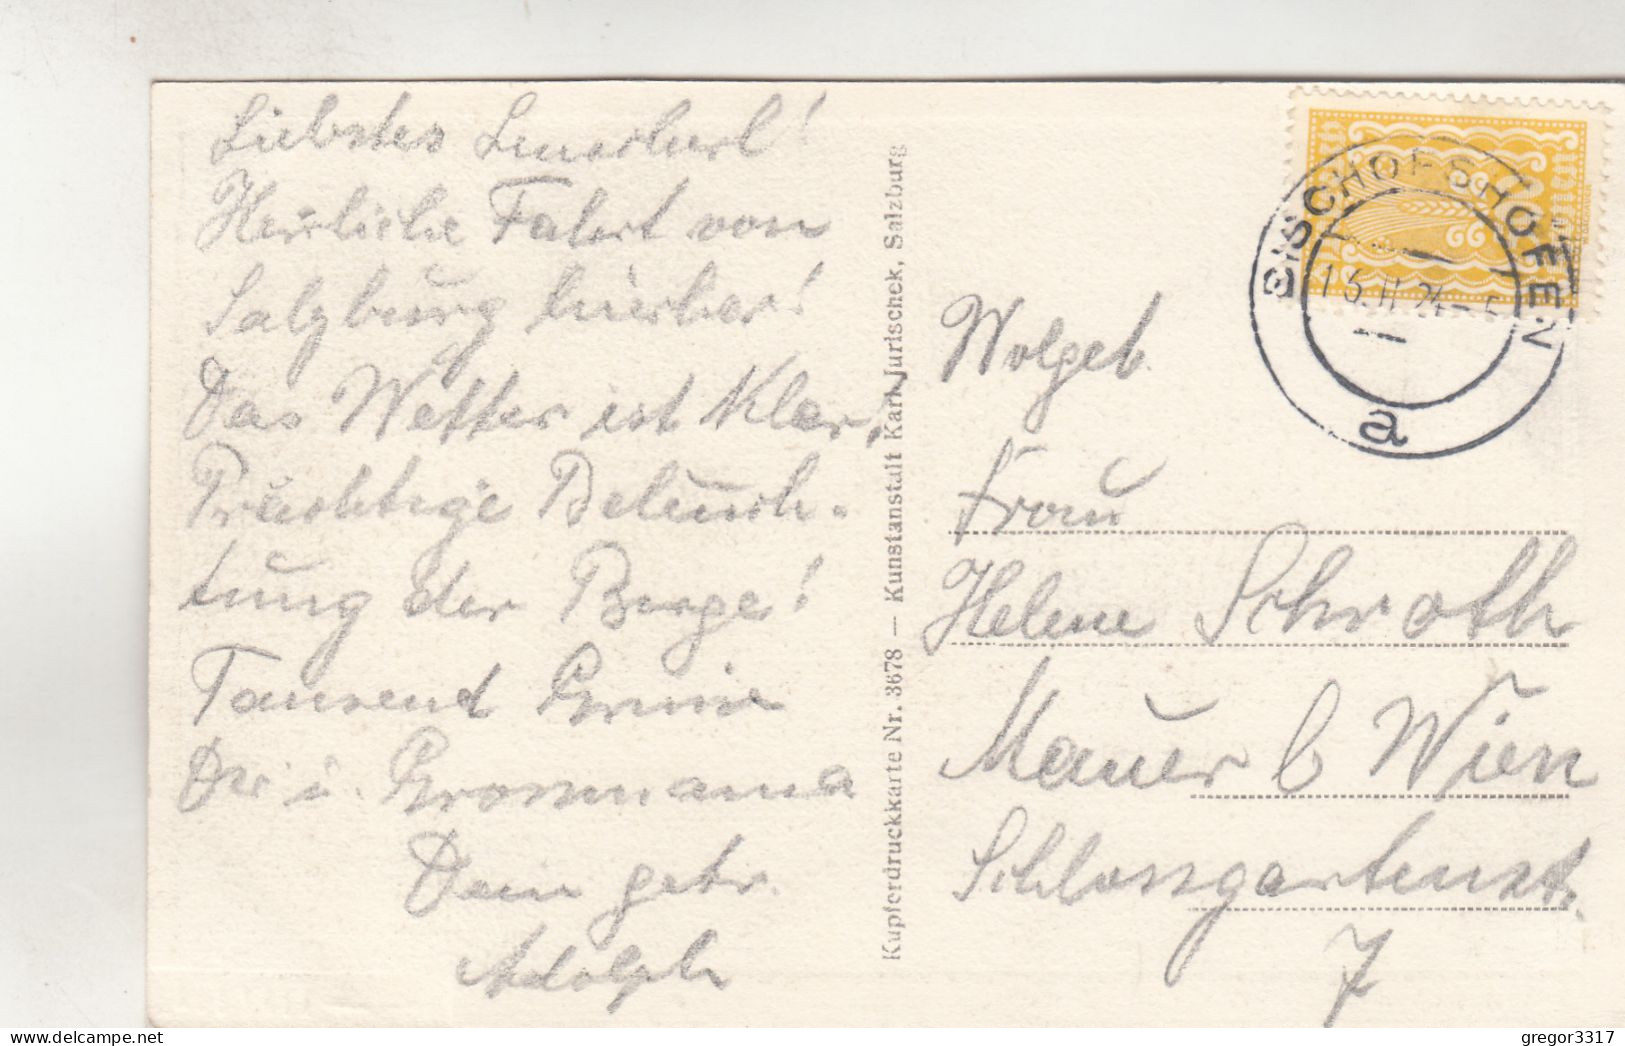 Liebstes
Herrliche Fahrt von
Salzburg hierher!
Das Wetter ist klar,
Prächtige Beleuch-
tung der Berge!
Tausend Grüsse
Dir u. Grossmama
Dein getr.
Adolph
Kupferdruckkarte Nr. 3678 — Kunstanstalt Karl Jurischek, Salzburg
BISCHOFSHOFEN
a
Wolgeb.
Frau
Helene Schroth
Mauer b Wien
Schlossgartenst.
7
delcampe.net
gregor3317